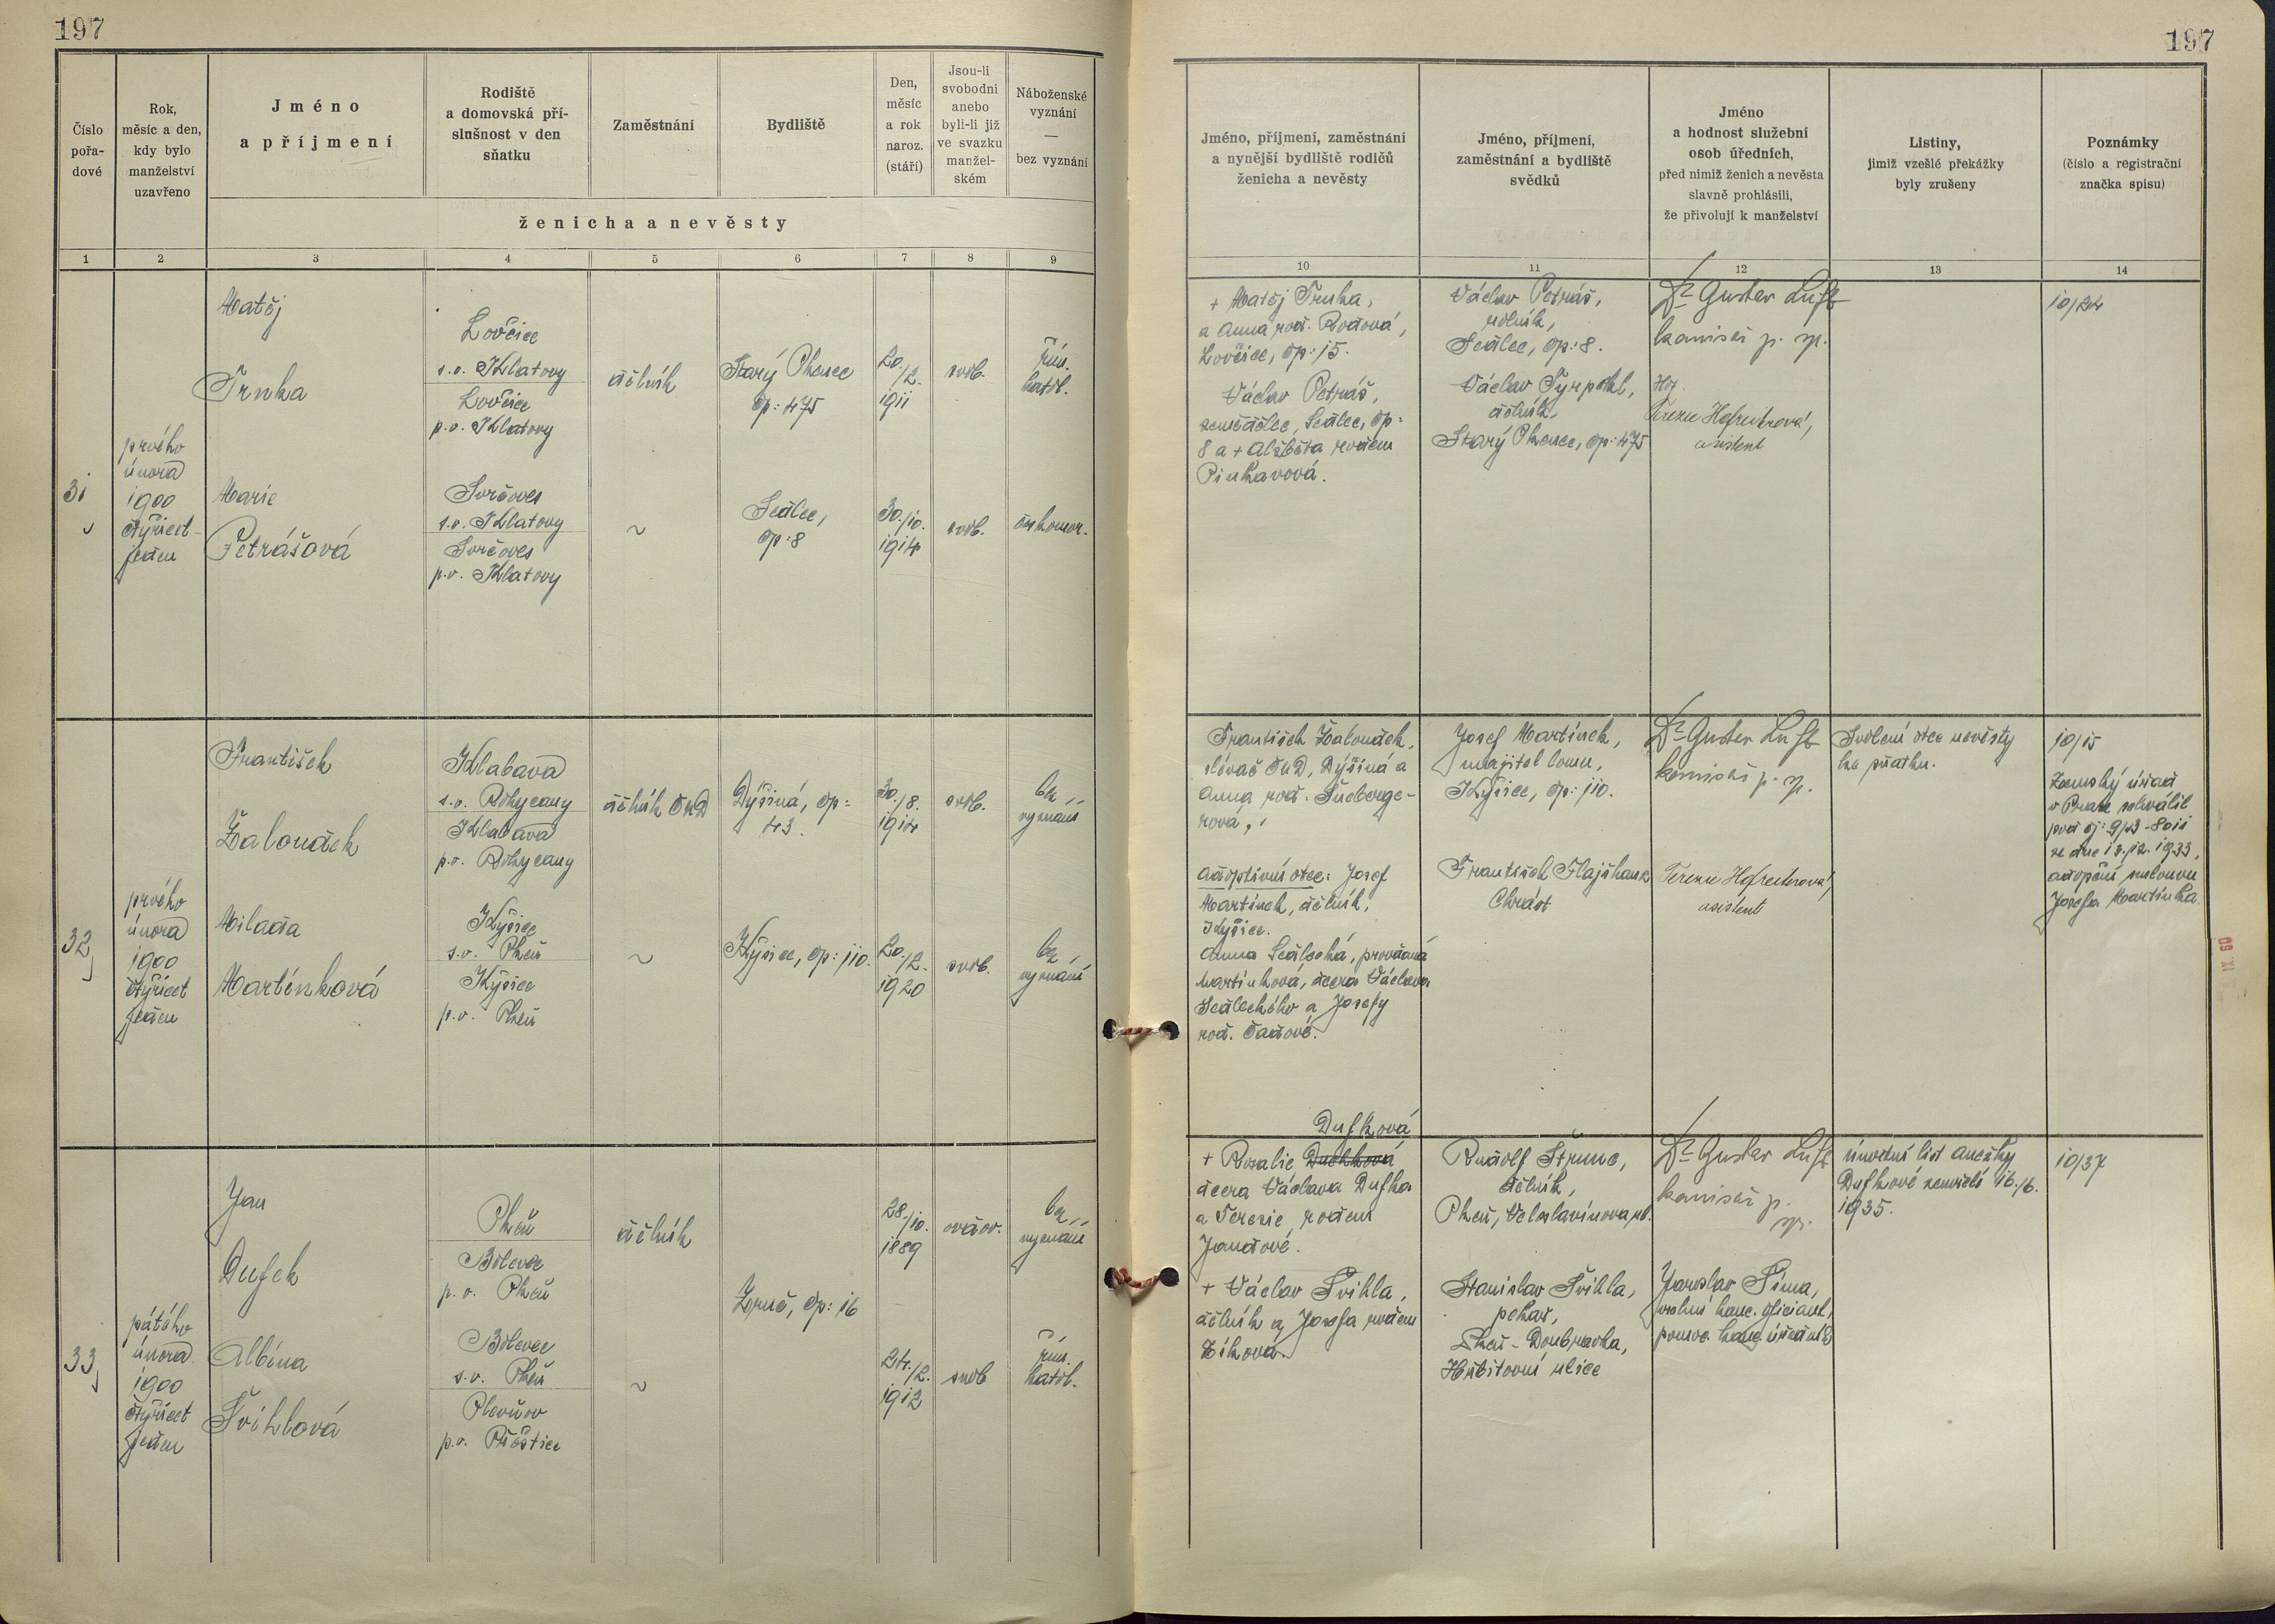 197
197
Číslo
pořa-
dové
Rok,
měsíc a den,
kdy bylo
manželství
uzavřeno
Jméno
a příjmení
Rodiště
a domovská pří-
slušnost v den
sňatku
Zaměstnání
Bydliště
Den,
měsíc
a rok
naroz.
(stáří)
Jsou-li
svobodni
anebo
byli-li již
ve svazku
manžel-
ském
Náboženské
vyznání
—
bez vyznání
ženicha a nevěsty
1 2 3 4 5 6 7 8 9
Jméno, příjmení, zaměstnání
a nynější bydliště rodičů
ženicha a nevěsty
Jméno, příjmení,
zaměstnání a bydliště
svědků
Jméno
a hodnost služební
osob úředních,
před nimiž ženich a nevěsta
slavně prohlásili,
že přivolují k manželství
Listiny,
jimiž vzešlé překážky
byly zrušeny
Poznámky
(číslo a registrační
značka spisu)
10 11 12 13 14
31
prvého
února
1900
čtyřicet-
jeden
Matěj
Trnka
Lovčice
s.o. Klatovy
Lovčice
p.o. Klatovy
dělník
Starý Plzenec
čp: 475
20./2.
1911
svob.
řím.
katol.
Marie
Petrášová
Svrčoves
s.o. Klatovy
Svrčoves
p.o. Klatovy
~
Sedlec,
čp: 8
30./10.
1914
svob.
českomor.
+ Matěj Trnka,
a Anna roz. Rodová,
Lovčice, čp: 15.
Václav Petráš,
zemědělec, Sedlec, čp:
8 a + Alžběta rodem
Pinkavová.
Václav Petráš,
rolník,
Sedlec, čp: 8.
Václav Tyrpekl,
dělník,
Starý Plzenec, čp: 475
Dr Gustav Luft
komisař p. sp.
Hof.
Terezie Hofreitrová,
asistent
10/24
32
prvého
února
1900
čtyřicet
jeden
František
Žaloudek
Klabava
s.o. Rokycany
Klabava
p.o. Rokycany
dělník ČMD
Dýšiná, čp:
43.
30./8.
1914
svob.
bez
vyznání
Milada
Martínková
Kyšice
s.o. Plzeň
Kyšice
p.o. Plzeň
~
Kyšice, čp: 110.
20./2.
1920
svob.
bez
vyznání
František Žaloudek,
slévač ČMD, Dýšiná a
Anna roz. Šneberge-
rová,
Adoptivní otec: Josef
Martínek, dělník,
Kyšice.
Anna Sedlecká, provdaná
Martínková, dcera Václava
Sedleckého a Josefy
roz. Čadové.
Josef Martínek,
majitel lomu,
Kyšice, čp: 110.
František Flajšhans
Chrást
Dr Gustav Luft
komisař p. sp.
Terezie Hofreitrová,
asistent
Svolení otce nevěsty
ke sňatku.
10/15
Zemský úřad
v Praze schválil
pod čj: 9/43-8011
ze dne 13./12. 1933,
adopční smlouvu
Josefa Martínka.
33
pátého
února
1900
čtyřicet
jeden
Jan
Dufek
Plzeň
Bolevec
p.o. Plzeň
dělník
Zruč, čp: 16
28./10.
1889
ovdov.
bez
vyznání
Albína
Švihlová
Bolevec
s.o. Plzeň
Plevňov
p.o. Přeštice
~
24./2.
1912
svob
řím.
katol.
Dufková
+ Rozalie Duchková
dcera Václava Dufka
a Terezie, rodem
Jandové.
+ Václav Švihla,
dělník a Josefa rodem
Zíková.
Rudolf Štrunc,
dělník,
Plzeň, Veleslavínova ul.
Stanislav Švihla,
pekař,
Plzeň-Doubravka,
Hřbitovní ulice
Dr Gustav Luft
komisař p.
sp.
Jaroslav Šíma,
Úmrtní list Anežky
Dufkové zemřelé 16./6.
1935.
10/37